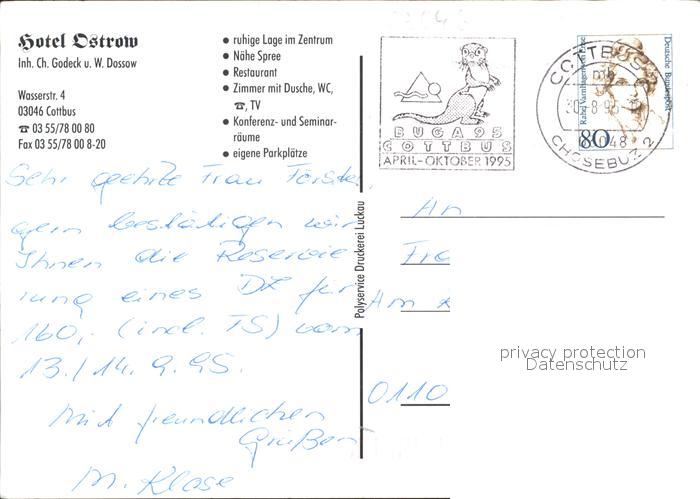 Hotel Ostrow
Inh. Ch. Godeck u. W. Dossow
Wasserstr. 4
03046 Cottbus
☎ 03 55/78 00 80
Fax 03 55/78 00 8-20
● ruhige Lage im Zentrum
● Nähe Spree
● Restaurant
● Zimmer mit Dusche, WC,
☎, TV
● Konferenz- und Seminar-
räume
● eigene Parkplätze
BUGA 95
COTTBUS
APRIL-OKTOBER 1995
COTTBUS 2
mb
CHOSEBUZ 2
Rahel Varnhagen von Ense
Deutsche Bundespost
80
Sehr geehrte Frau
gern bestätigen wir
Ihnen die Reservie
rung eines DZ für
160,- (incl. TS) vom
13./14.9.95.
Mit freundlichen
Grüßen
M. Klose
Polyservice Druckerei Luckau
An
Fra
Am
0110
privacy protection
Datenschutz